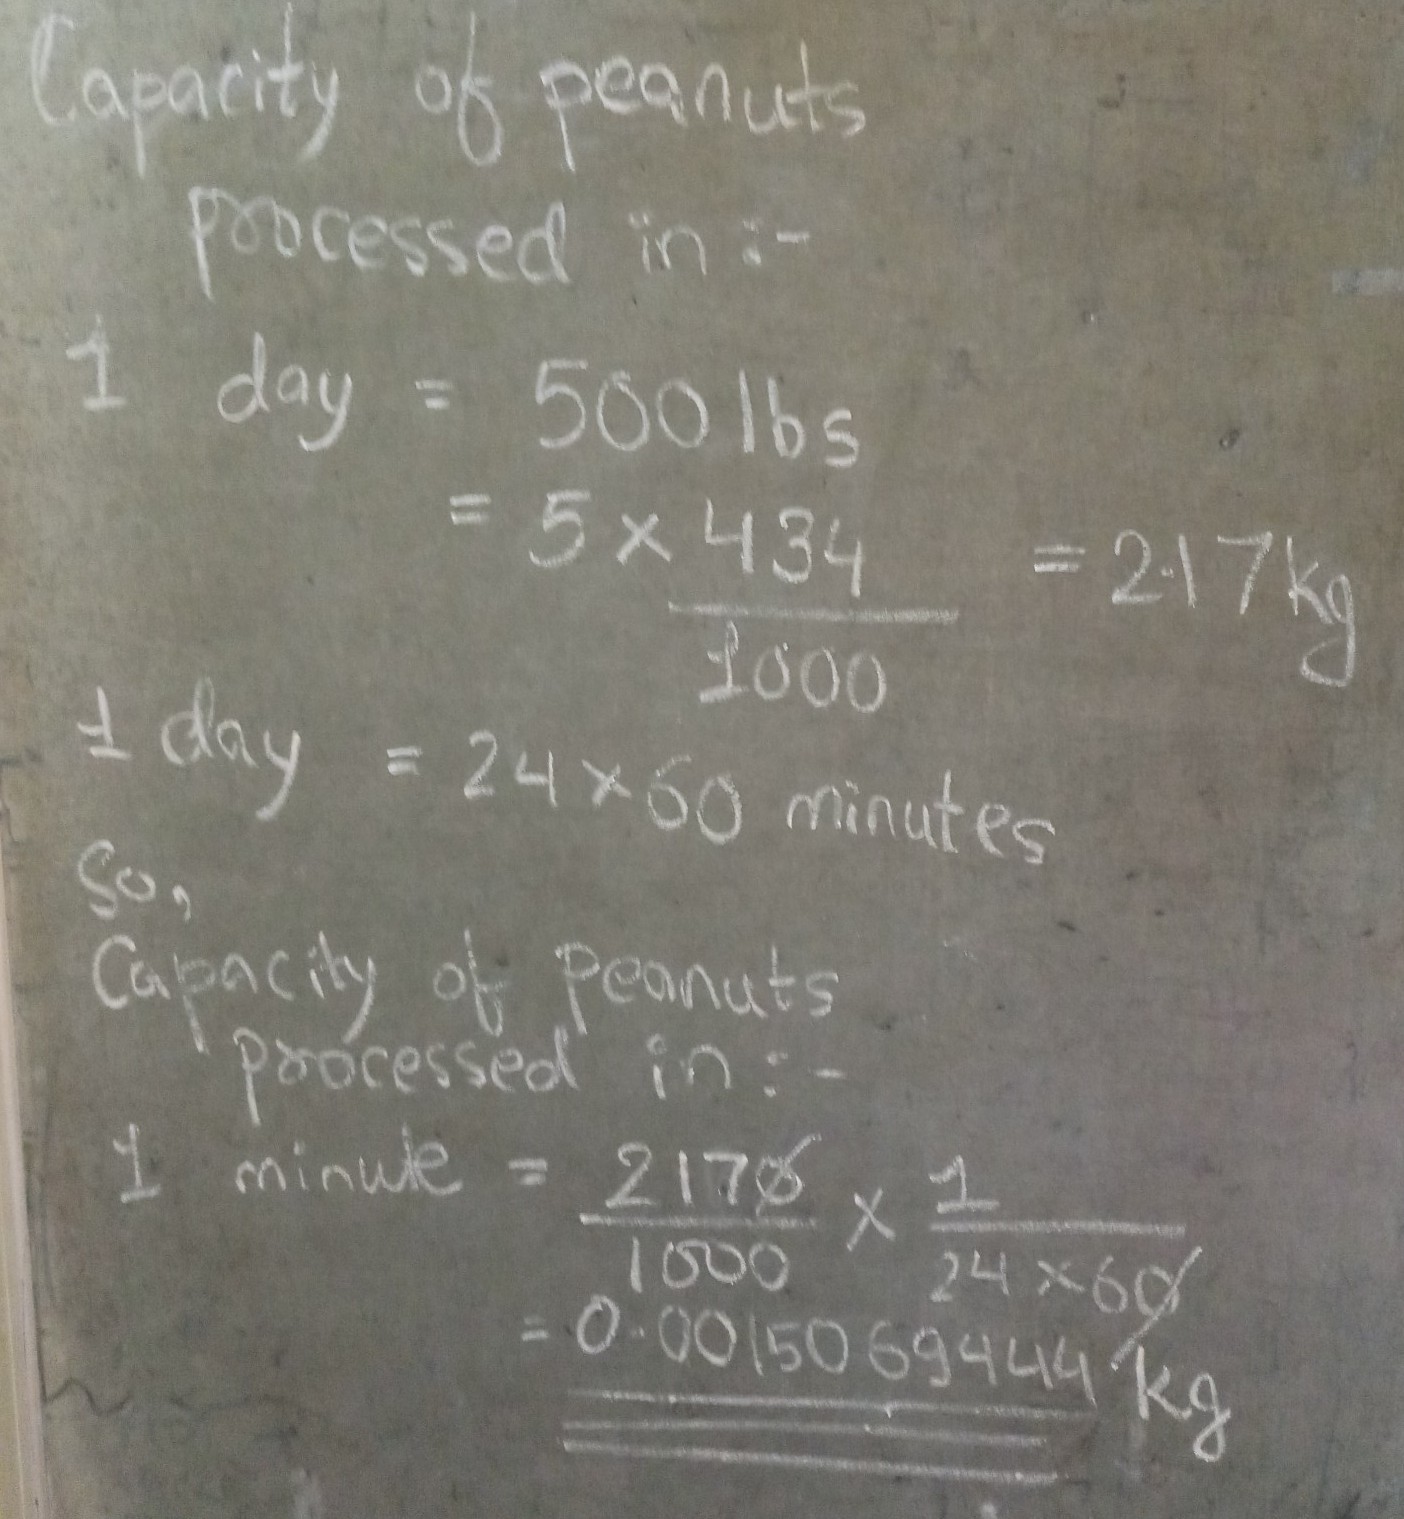 Capacity of peanuts
processed in :-
1 day = 500 lbs
= 5 x 434 / 1000 = 2.17 kg
1 day = 24 x 60 minutes
So,
Capacity of Peanuts
processed in :-
1 minute = 2170 / 1000 x 1 / 24 x 60
= 0.00150 69444 kg